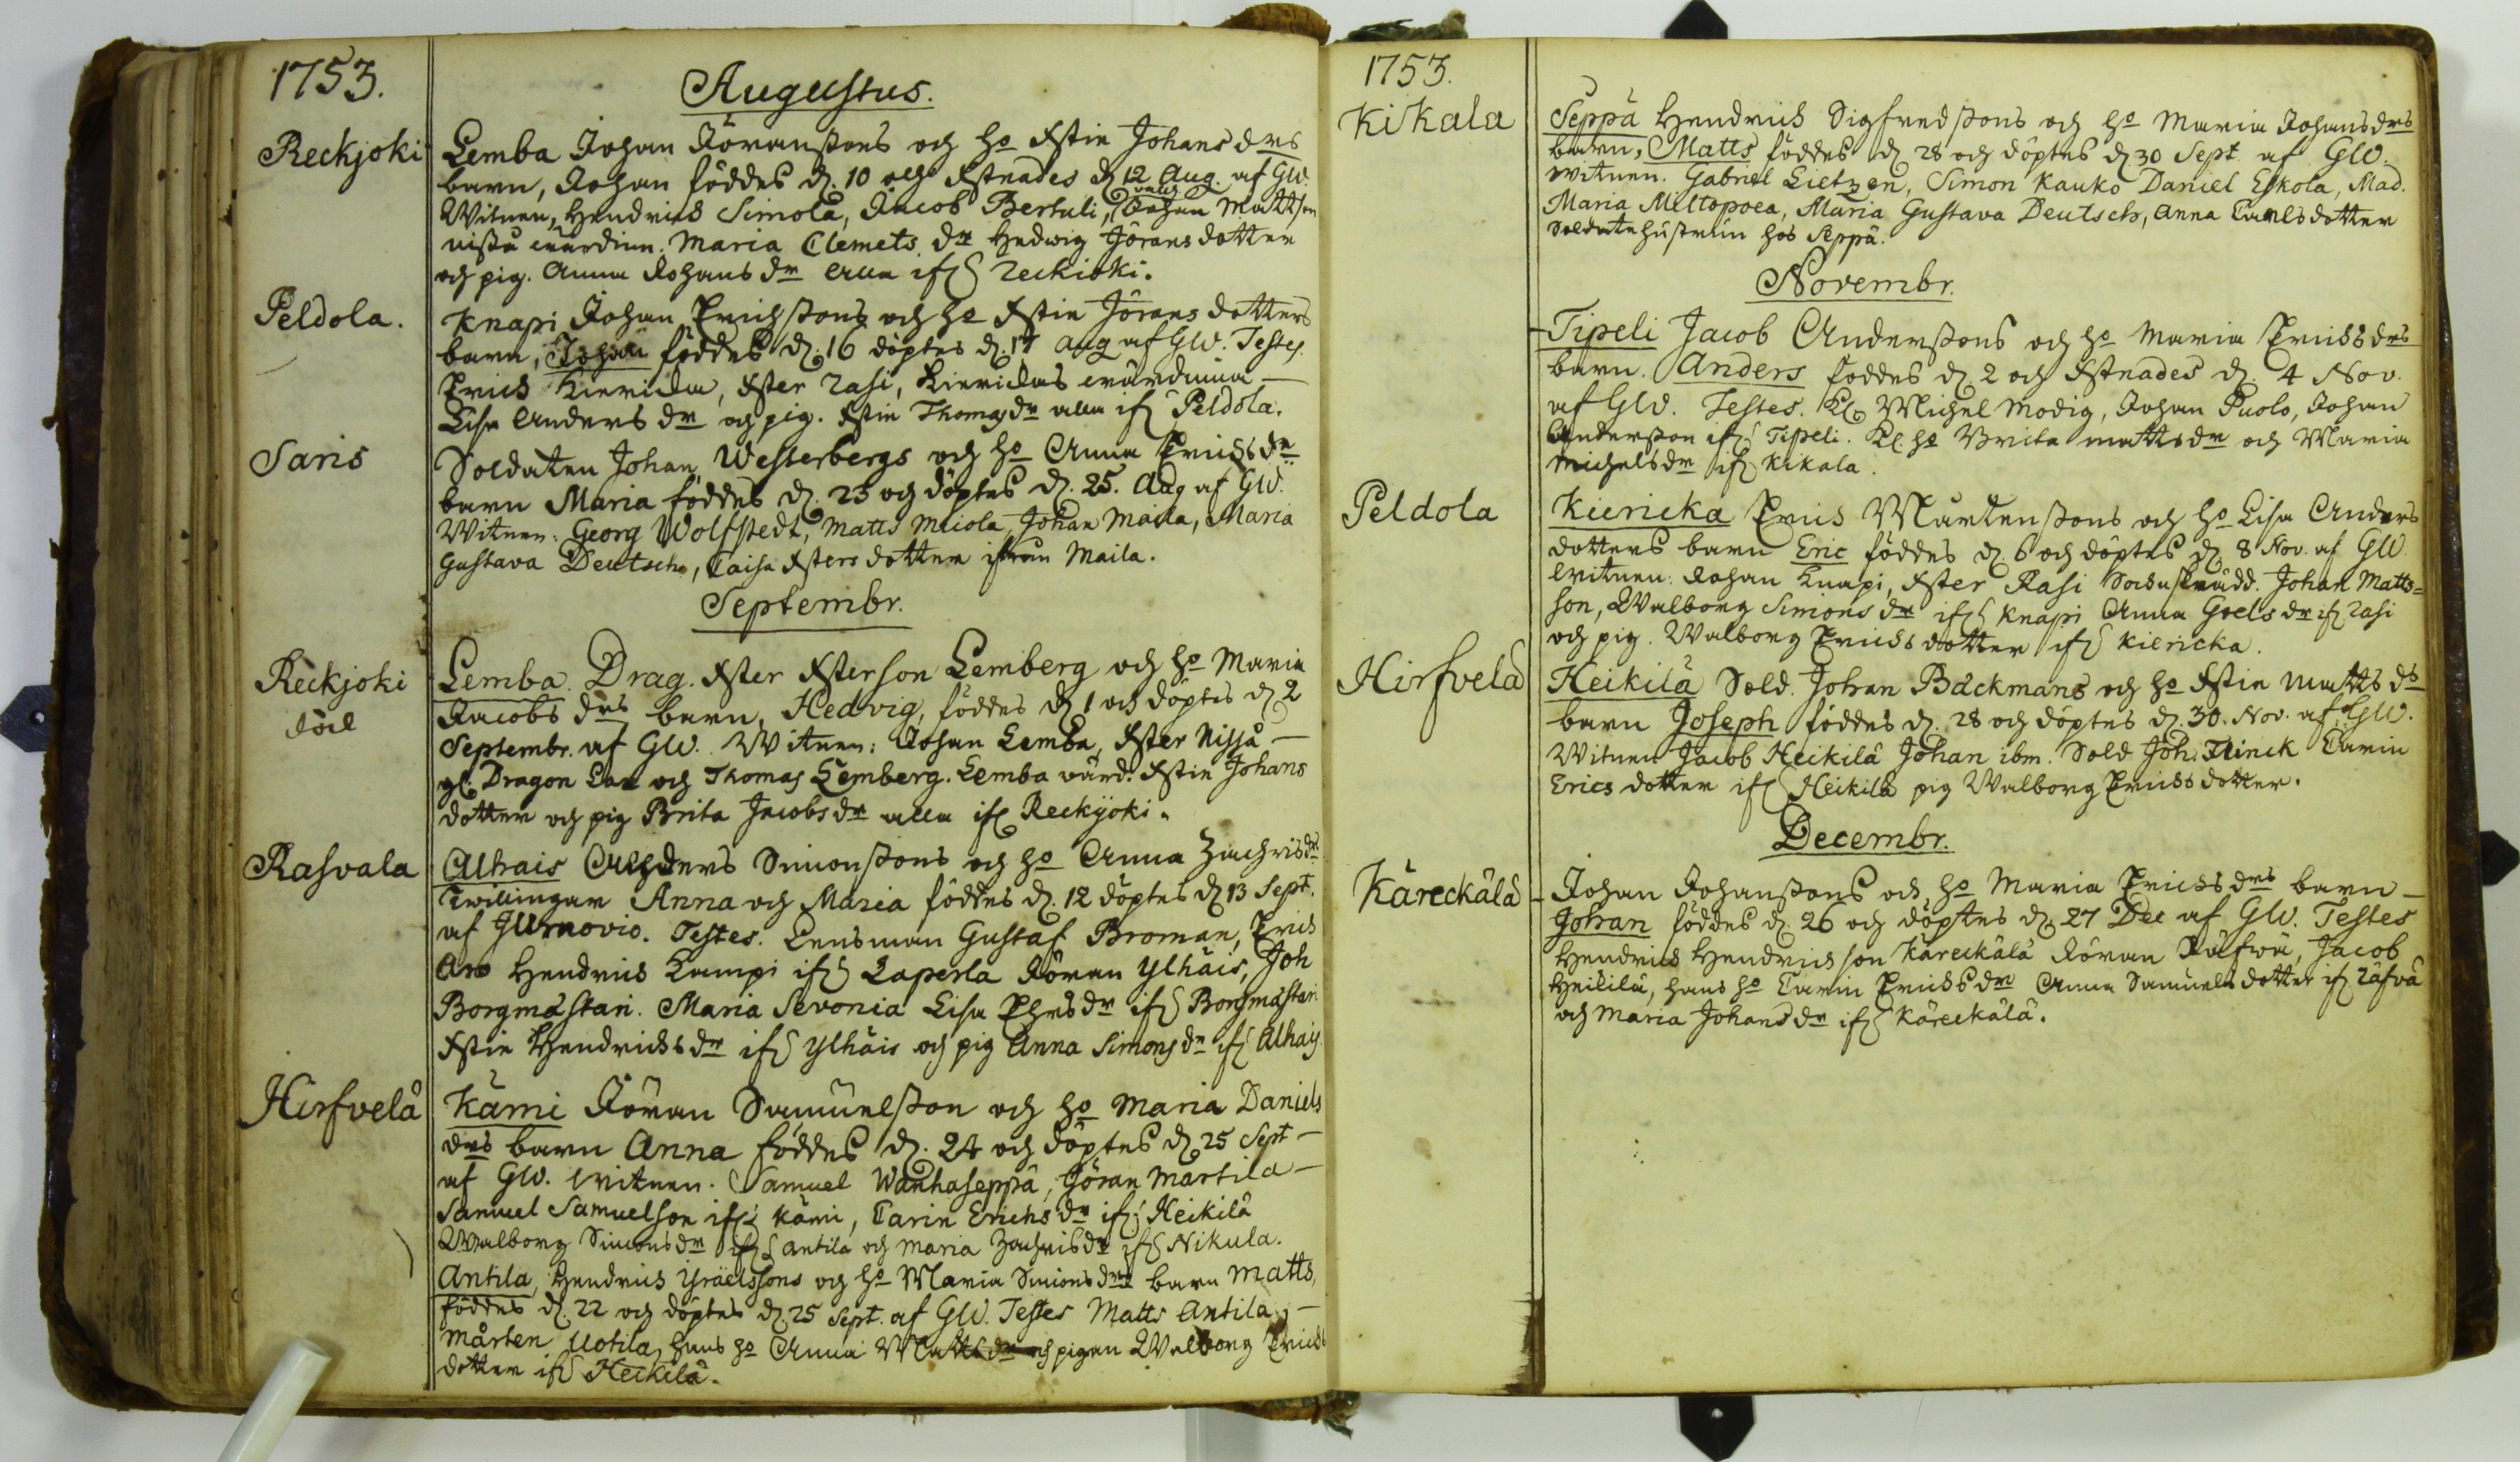 1753.
Augustus.
Reckjoki
Lemba Johan Jöranssons och ho Kstin Johans drs
barn, Johan föddes d. 10 och Xstnades d 12 Aug. af GW.
Witnen, Hendrich Simola, Jacob Bertuli, Johan Mattson
Nissa wärdinn. Maria Clemets dr Hedwig Jörans dotter
och pig. Anna Johans dr alla if Reckioki.
Peldola.
Knapi Johan Erichssons och ho Kstin Jörans dotters
barn, Johan föddes d. 16 döptes d. 17 Aug af GW. Testes.
Erich Kiericka, Xster Rasi, Kierickas wärdinna
Lisa Anders dr och pig. Kstin Thomas dr alla if Peldola.
Saris
Soldaten Johan Westerbergs och ho Anna Erichs dr
barn Maria föddes d. 23 och döptes d. 25. Aug af GW.
Witnen: Georg Wolfstedt, Matts Meiola, Johan Maila, Maria
Gustava Deutsch, Caisa Xsters dotter ifrån Maila.
Septembr.
Reckjoki
död
Lemba. Drag. Xster Xsterson Lemberg och ho Maria
Jacobs drs barn, Hedvig, föddes d 1 och döptes d 2
Septembr. af GW. Witnen: Johan Lemba, Xster Nissä
gl. Dragon Lax och Thomas Lemberg. Lemba wärd. Kstin Johans
dotter och pig Brita Jacobs dr alla if Reckjoki.
Rasvala
Alhais Anders Simonssons och ho Anna Zachris dr
Twillingar Anna och Maria föddes d. 12 döptes d 13 Sept.
af GWrnovio. Testes. Lensman Gustaf Broman, Erich
Aro Hendrich Kampi if Laperla Jöran Ylhäis, Joh
Borgmästari. Maria Sevonia Lisa Ehrs dr if Borgmästari
Kstin Hendrichs dr if Ylhäis och pig Anna Simons dr if Alhais
Hirfvelä
Kämi Jöran Samuelsson och ho Maria Daniels
drs barn Anna föddes d. 24 och döptes d 25 Sept
af GW. Witnen. Samuel Wanhaseppä, Jöran Martila
Samuel Samuelson if Kämi, Carin Erichs dr if Heikilä
Walborg Simons dr if Antila och Maria Zachris dr if Nikula.
Antila, Hendrich Yräelssons och ho Maria Simons drs barn Matts,
föddes d. 22 och döptes d. 25 Sept. af GW. Testes Matts Antila,
Mårten Uotila, hans ho Anna Matts dr och pigan Walborg Erichs
dotter if Heikilä.
1753.
Kikala
Seppä Hendrich Sigfredssons och ho Maria Johans drs
barn, Matts föddes d 28 och döptes d. 30 Sept. af GW.
Witnen. Gabriel Lietzen, Simon Kauko Daniel Eskola, Mad.
Maria Meltopoea, Maria Gustava Deutsch, Anna Carlsdotter
Soldatehustrun hos Seppä.
Novembr.
Tipeli Jacob Anderssons och ho Maria Erichs drs
barn. Anders föddes d. 2 och Xstnades d. 4 Nov.
af GW. Testes. Michel Modig, Johan Puolo, Johan
Andersson if Tipeli. ho Brita Matts dr och Maria
Michels dr if Kikala.
Peldola
Kiericka Erich Mårtenssons och ho Lisa Anders
dotters barn Eric föddes d. 6 och döptes d. 8 Nov. af GW
Witnen. Johan Knapi, Xster Rasi Sockneskrädd. Johan Matts=
son, Walborg Simons dr if Knapi Anna Goels dr if Rasi
och pig. Walborg Erichs dotter if Kiericka.
Hirfvelä
Heikilä Sold. Johan Backmans och ho Kstin Matts ds
barn Joseph föddes d. 28 och döptes d. 30. Nov. af GW.
Witnen Jacob Heikilä Johan ibm. Sold Joh: Flinck Carin
Erics dotter if Heikilä pig Walborg Erichs dotter.
Decembr.
Käreckälä
Johan Johanssons och ho Maria Erichs drs barn
Johan föddes d. 26 och döptes d. 27 Dec af GW. Testes
Hendrich Hendrichson Käreckälä Jöran Räfwä, Jacob
Heikilä, hans ho Carin Erichs dr Anna Samuels dotter if Räfvä
och Maria Johans dr if Käreckälä.